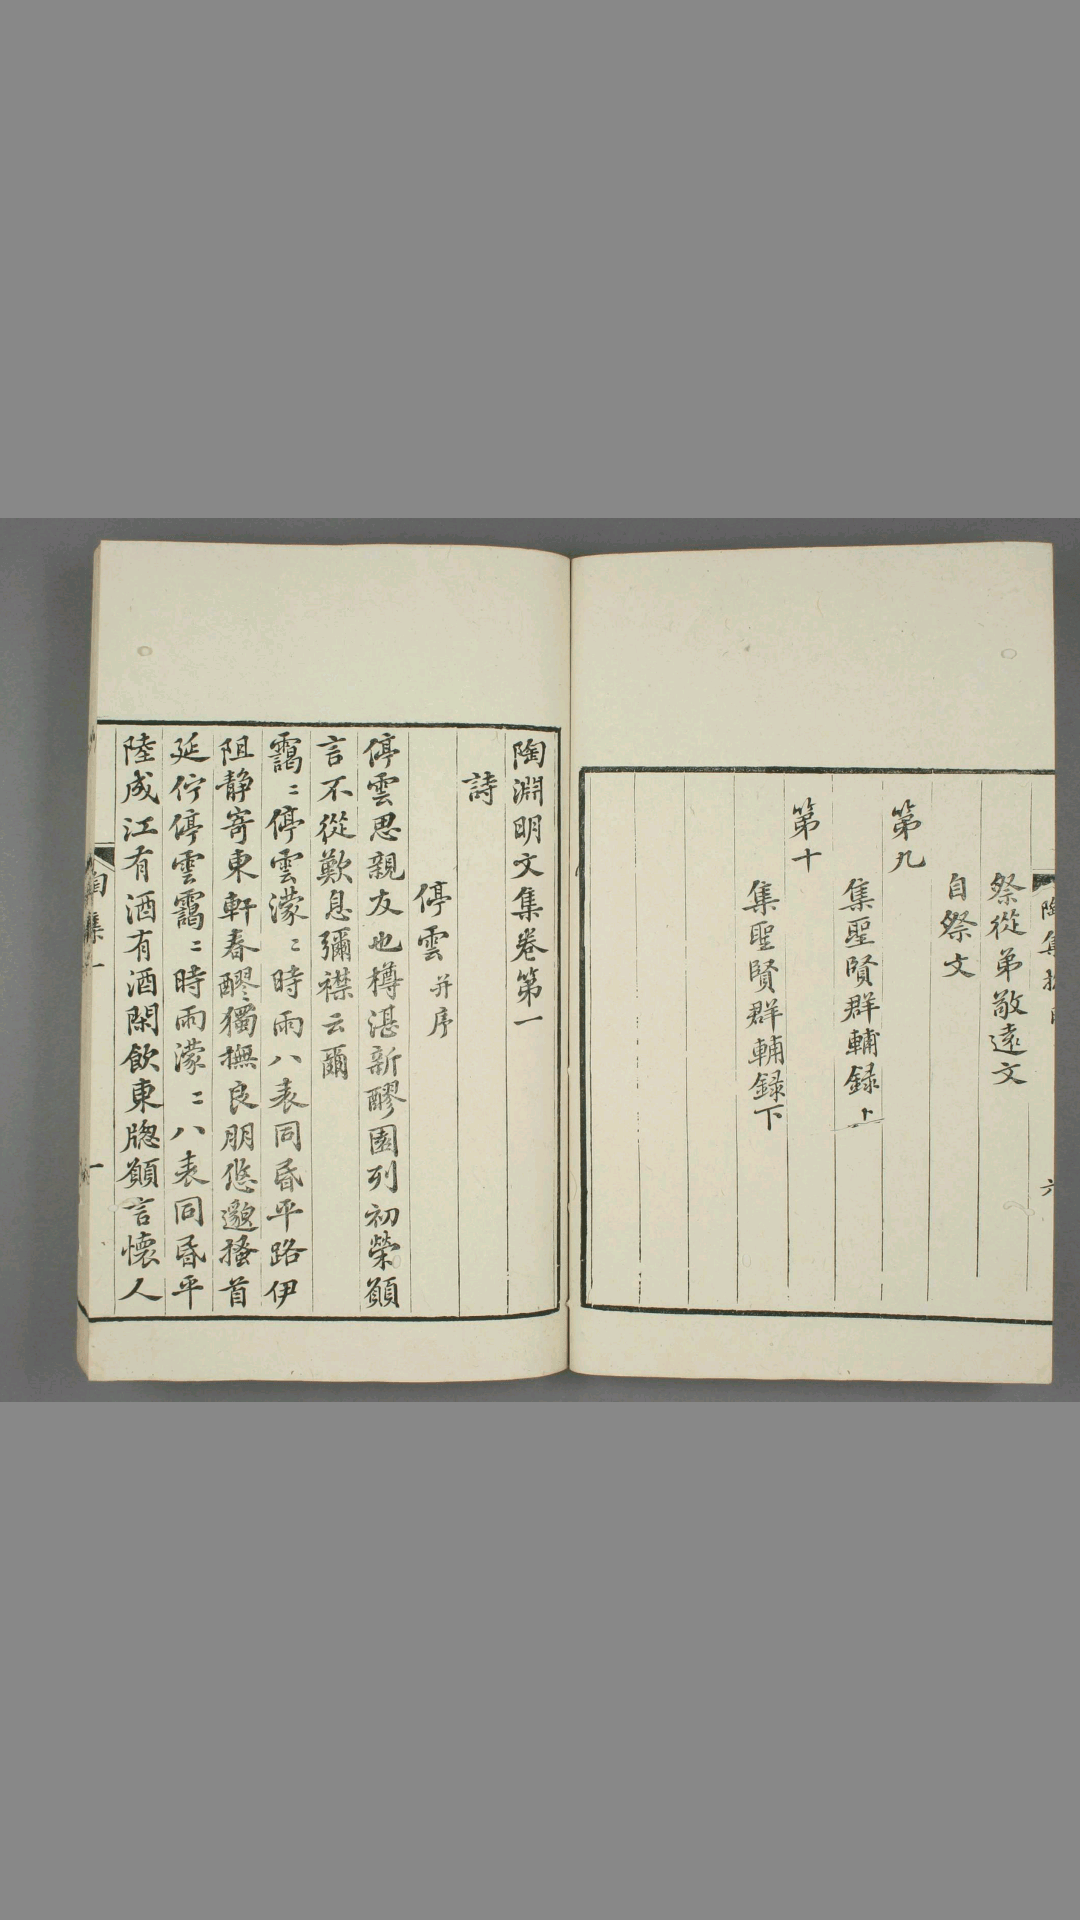 祭從弟敬遠文
自祭文
第九
集聖賢群輔録上
第十
集聖賢群輔録下
六
陶淵明文集卷第一
詩
停雲 并序
停雲思親友也樽湛新醪園列初榮願
言不從歎息彌襟云爾
靄〻停雲濛〻時雨八表同昏平路伊
阻静寄東軒春醪獨撫良朋悠邈搔首
延佇停雲靄〻時雨濛〻八表同昏平
陸成江有酒有酒閑飲東牎願言懷人
陶集一
一